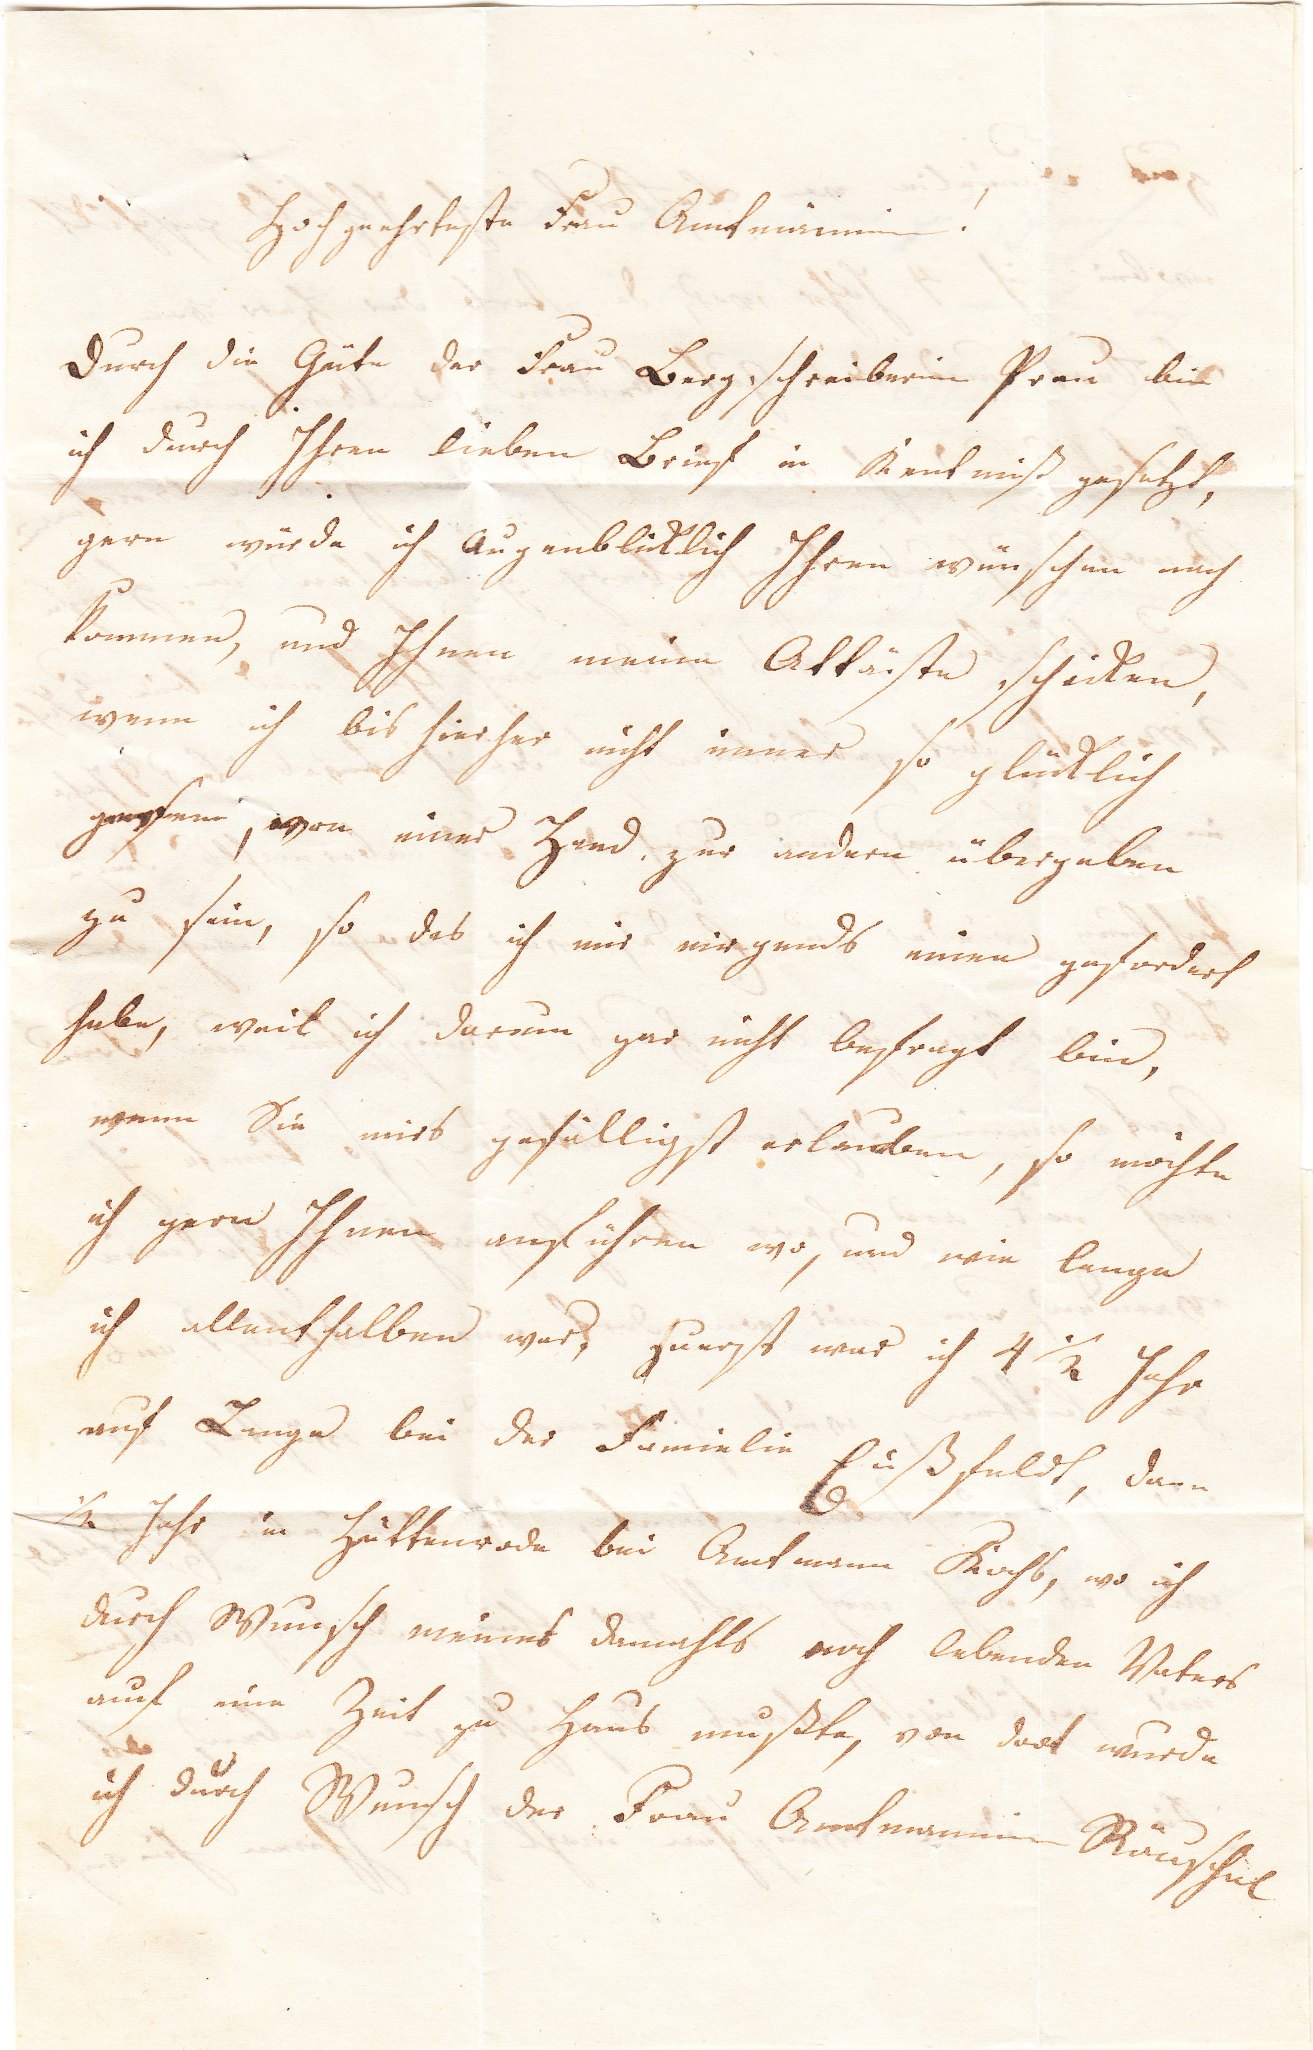 Hochgeehrteste Frau Amtmännin!
Durch die Güte der Frau Bergschreiberin Prau bin
ich durch Ihren lieben Brief in Kentniß gesetzt,
gern würde ich Augenblicklich Ihren wünschen nach
kommen, und Ihnen meine Attäste schicken,
wenn ich bis hierher nicht immer so glücklich
gewesen, von einer Hand zur andern übergeben
zu sein, so das ich mir nirgends einen gefordert
habe, weil ich darum gar nicht befragt bin,
wenn Sie mirs gefälligst erlauben, so möchte
ich gern Ihnen anführen wo, und wie lange
ich allenthalben war, zuerst war ich 4 1/2 Jahr
auf bei der Familie dann
1/2 Jahr in Hüttenrode bei Amtmann wo ich
durch Wunsch meines damahls noch lebenden Vaters
auf eine Zeit zu Haus mußte, von dort wurde
ich durch Wunsch der Frau Amtmannin